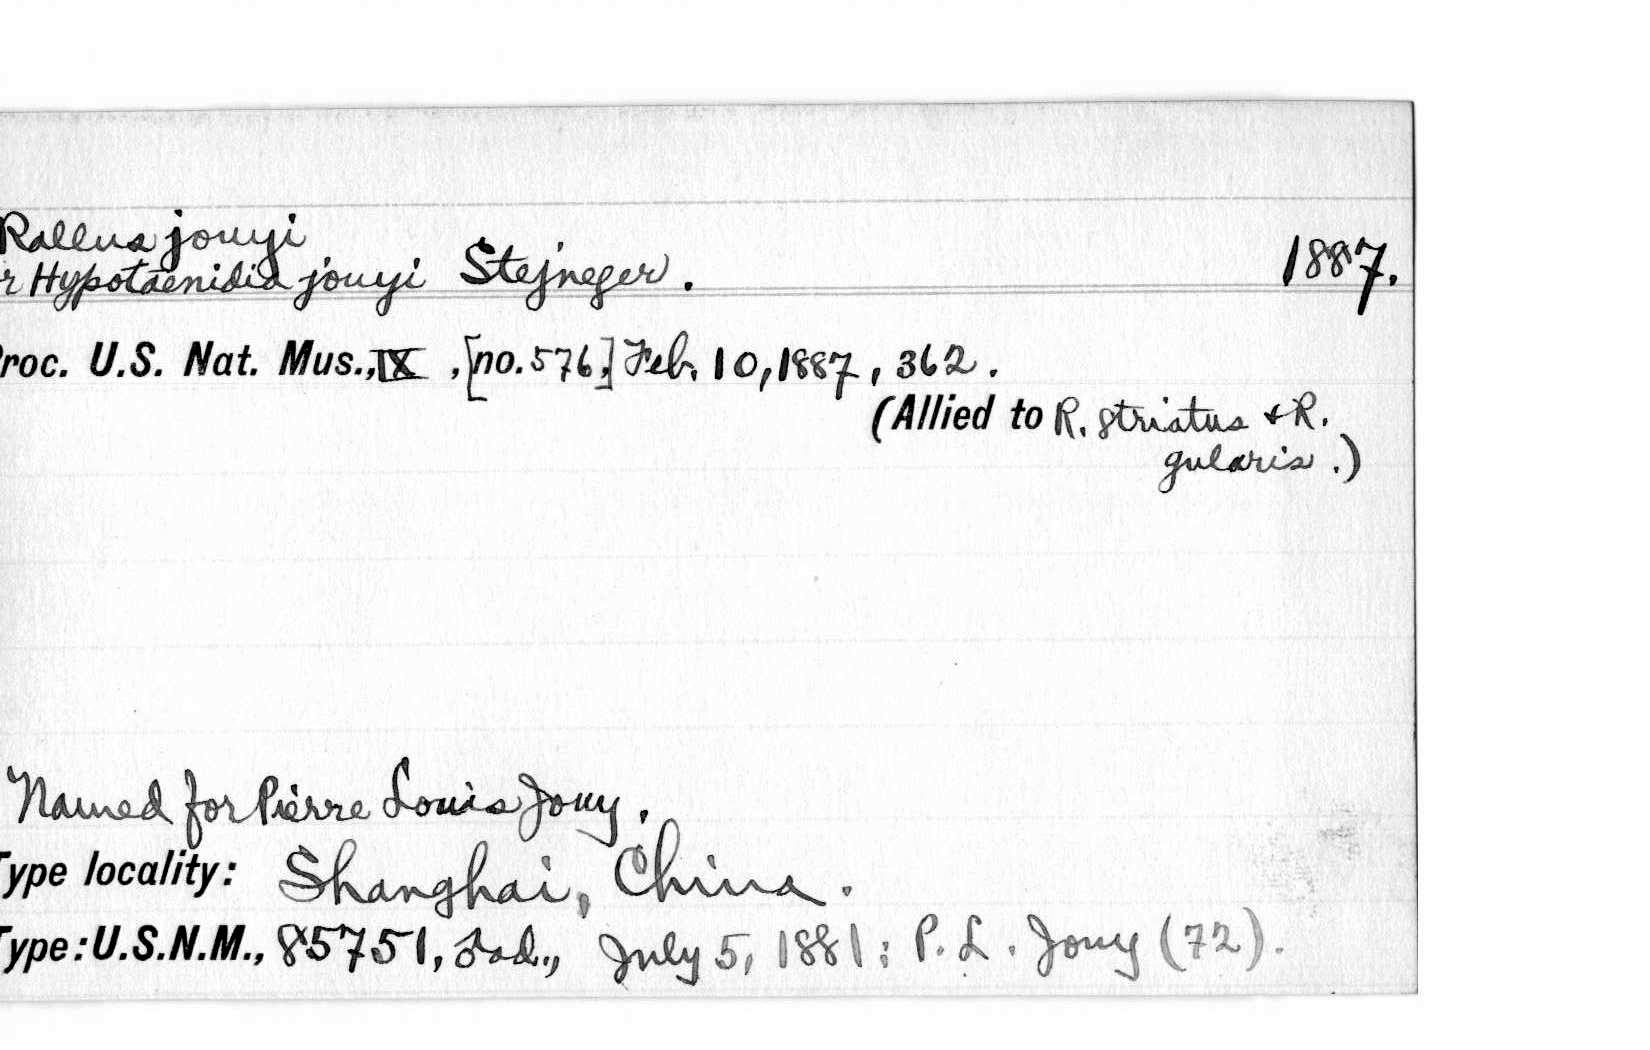 Rallus jouyi
r Hypotaenidia jouyi Stejneger. 1887.
roc. U.S. Nat. Mus., IX, [no. 576,] Feb. 10, 1887, 362.
(Allied to R. striatus & R.
gularis.)
Named for Pierre Louis Jouy.
Type locality: Shanghai, China.
Type: U.S.N.M., 85751, ad., July 5, 1881; P. L. Jouy (72).